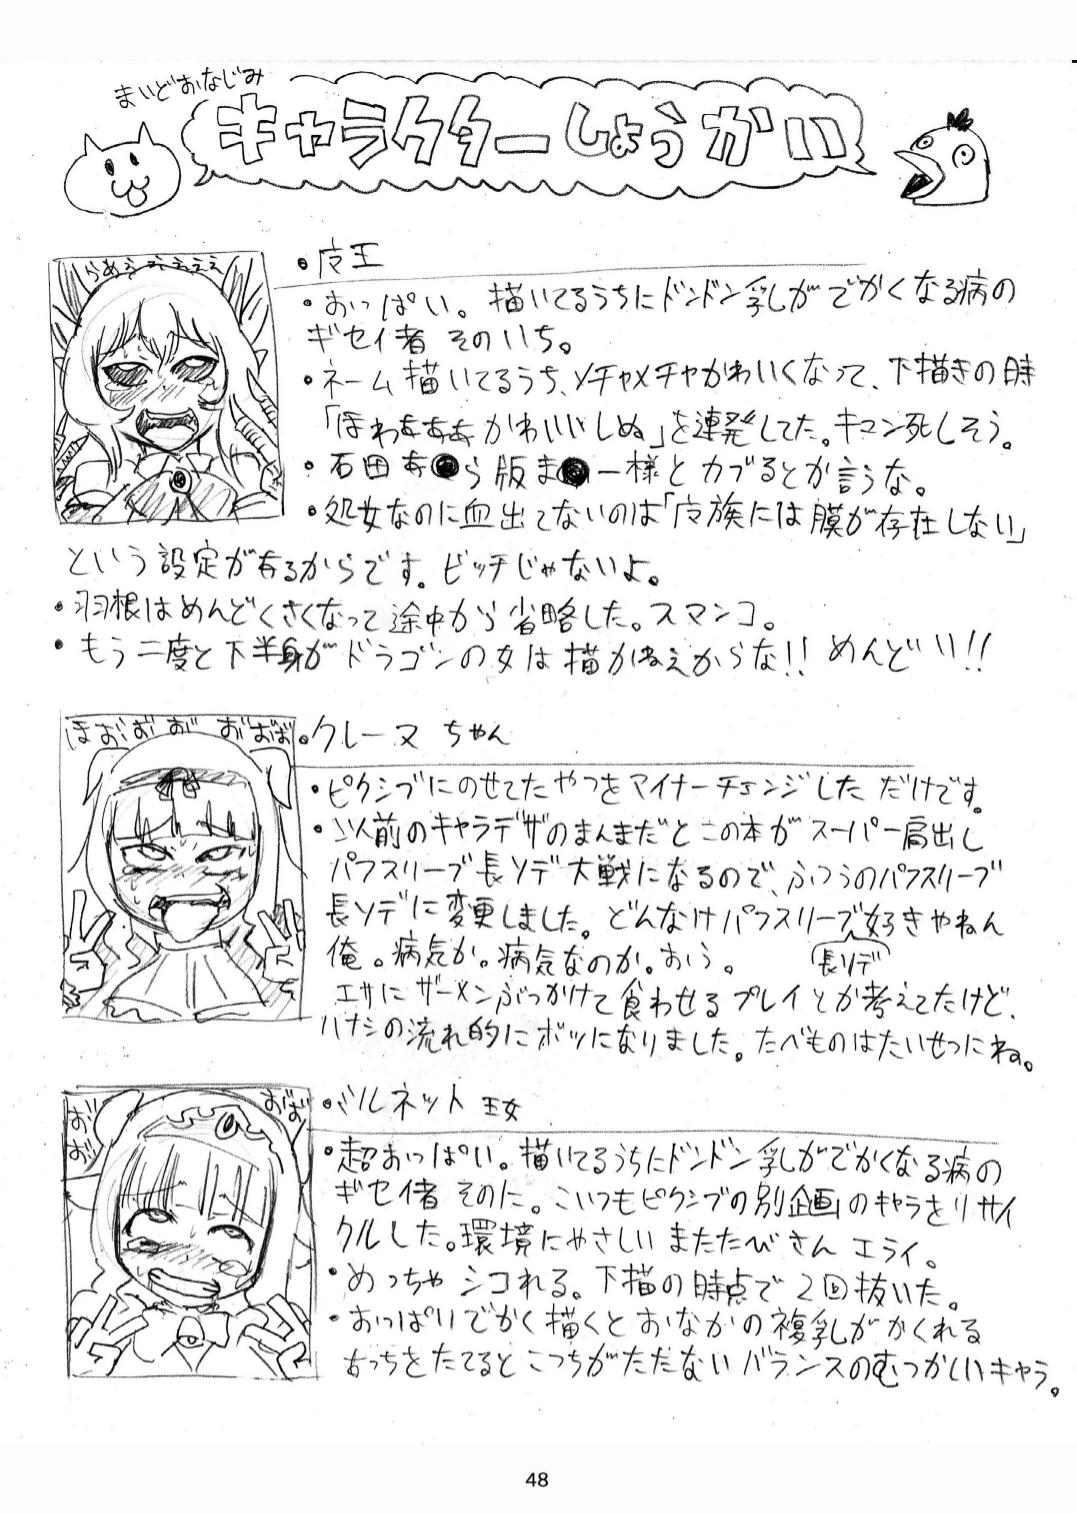 まいどおなじみ
キャラクターしょうかい
らめぇぇぇぇぇ
・皮王
・おっぱい。描いてるうちにドンドン乳がでかくなる病の
ギセイ者 そのいち。
・ネーム描いてるうち、メチャメチャかわいくなって、下描きの時
「ほわぁぁぁかわいいしぬ」を連発してた。キュン死しそう。
・石田あ●ら版ま●ー様とカブるとか言うな。
・処女なのに血出てないのは「皮族には膜が存在しない」
という設定が有るからです。ビッチじゃないよ。
・羽根はめんどくさくなって途中から省略した。スマンコ。
・もう二度と下半身がドラゴンの女は描かねえからな!!めんどい!!
ほおおお おおお
・クレーヌちゃん
・ピクシブにのせてたやつをマイナーチェンジしただけです。
・以前のキャラデザのまんまだとこの本がスーパー肩出し
パフスリーブ長ソデ大戦になるので、ふつうのパフスリーブ
長ソデに変更しました。どんなけパフスリーブ好きやねん
長ソデ
俺。病気か。病気なのか。おう。
エサにザーメンぶっかけて食わせるプレイとか考えてたけど、
ハナシの流れ的にボツになりました。たべものはたいせつにね。
お゛お゛
お゛お゛
・バルネット王女
・超おっぱい。描いてるうちにドンドン乳がでかくなる病の
ギセイ者 そのに。こいつもピクシブの別企画のキャラをリサイ
クルした。環境にやさしいまたたびさんエライ。
・めっちゃシコれる。下描の時点で2回抜いた。
・おっぱいでかく描くとおなかの複乳がかくれる
あっちをたてるとこっちがたたないバランスのむつかしいキャラ。
48